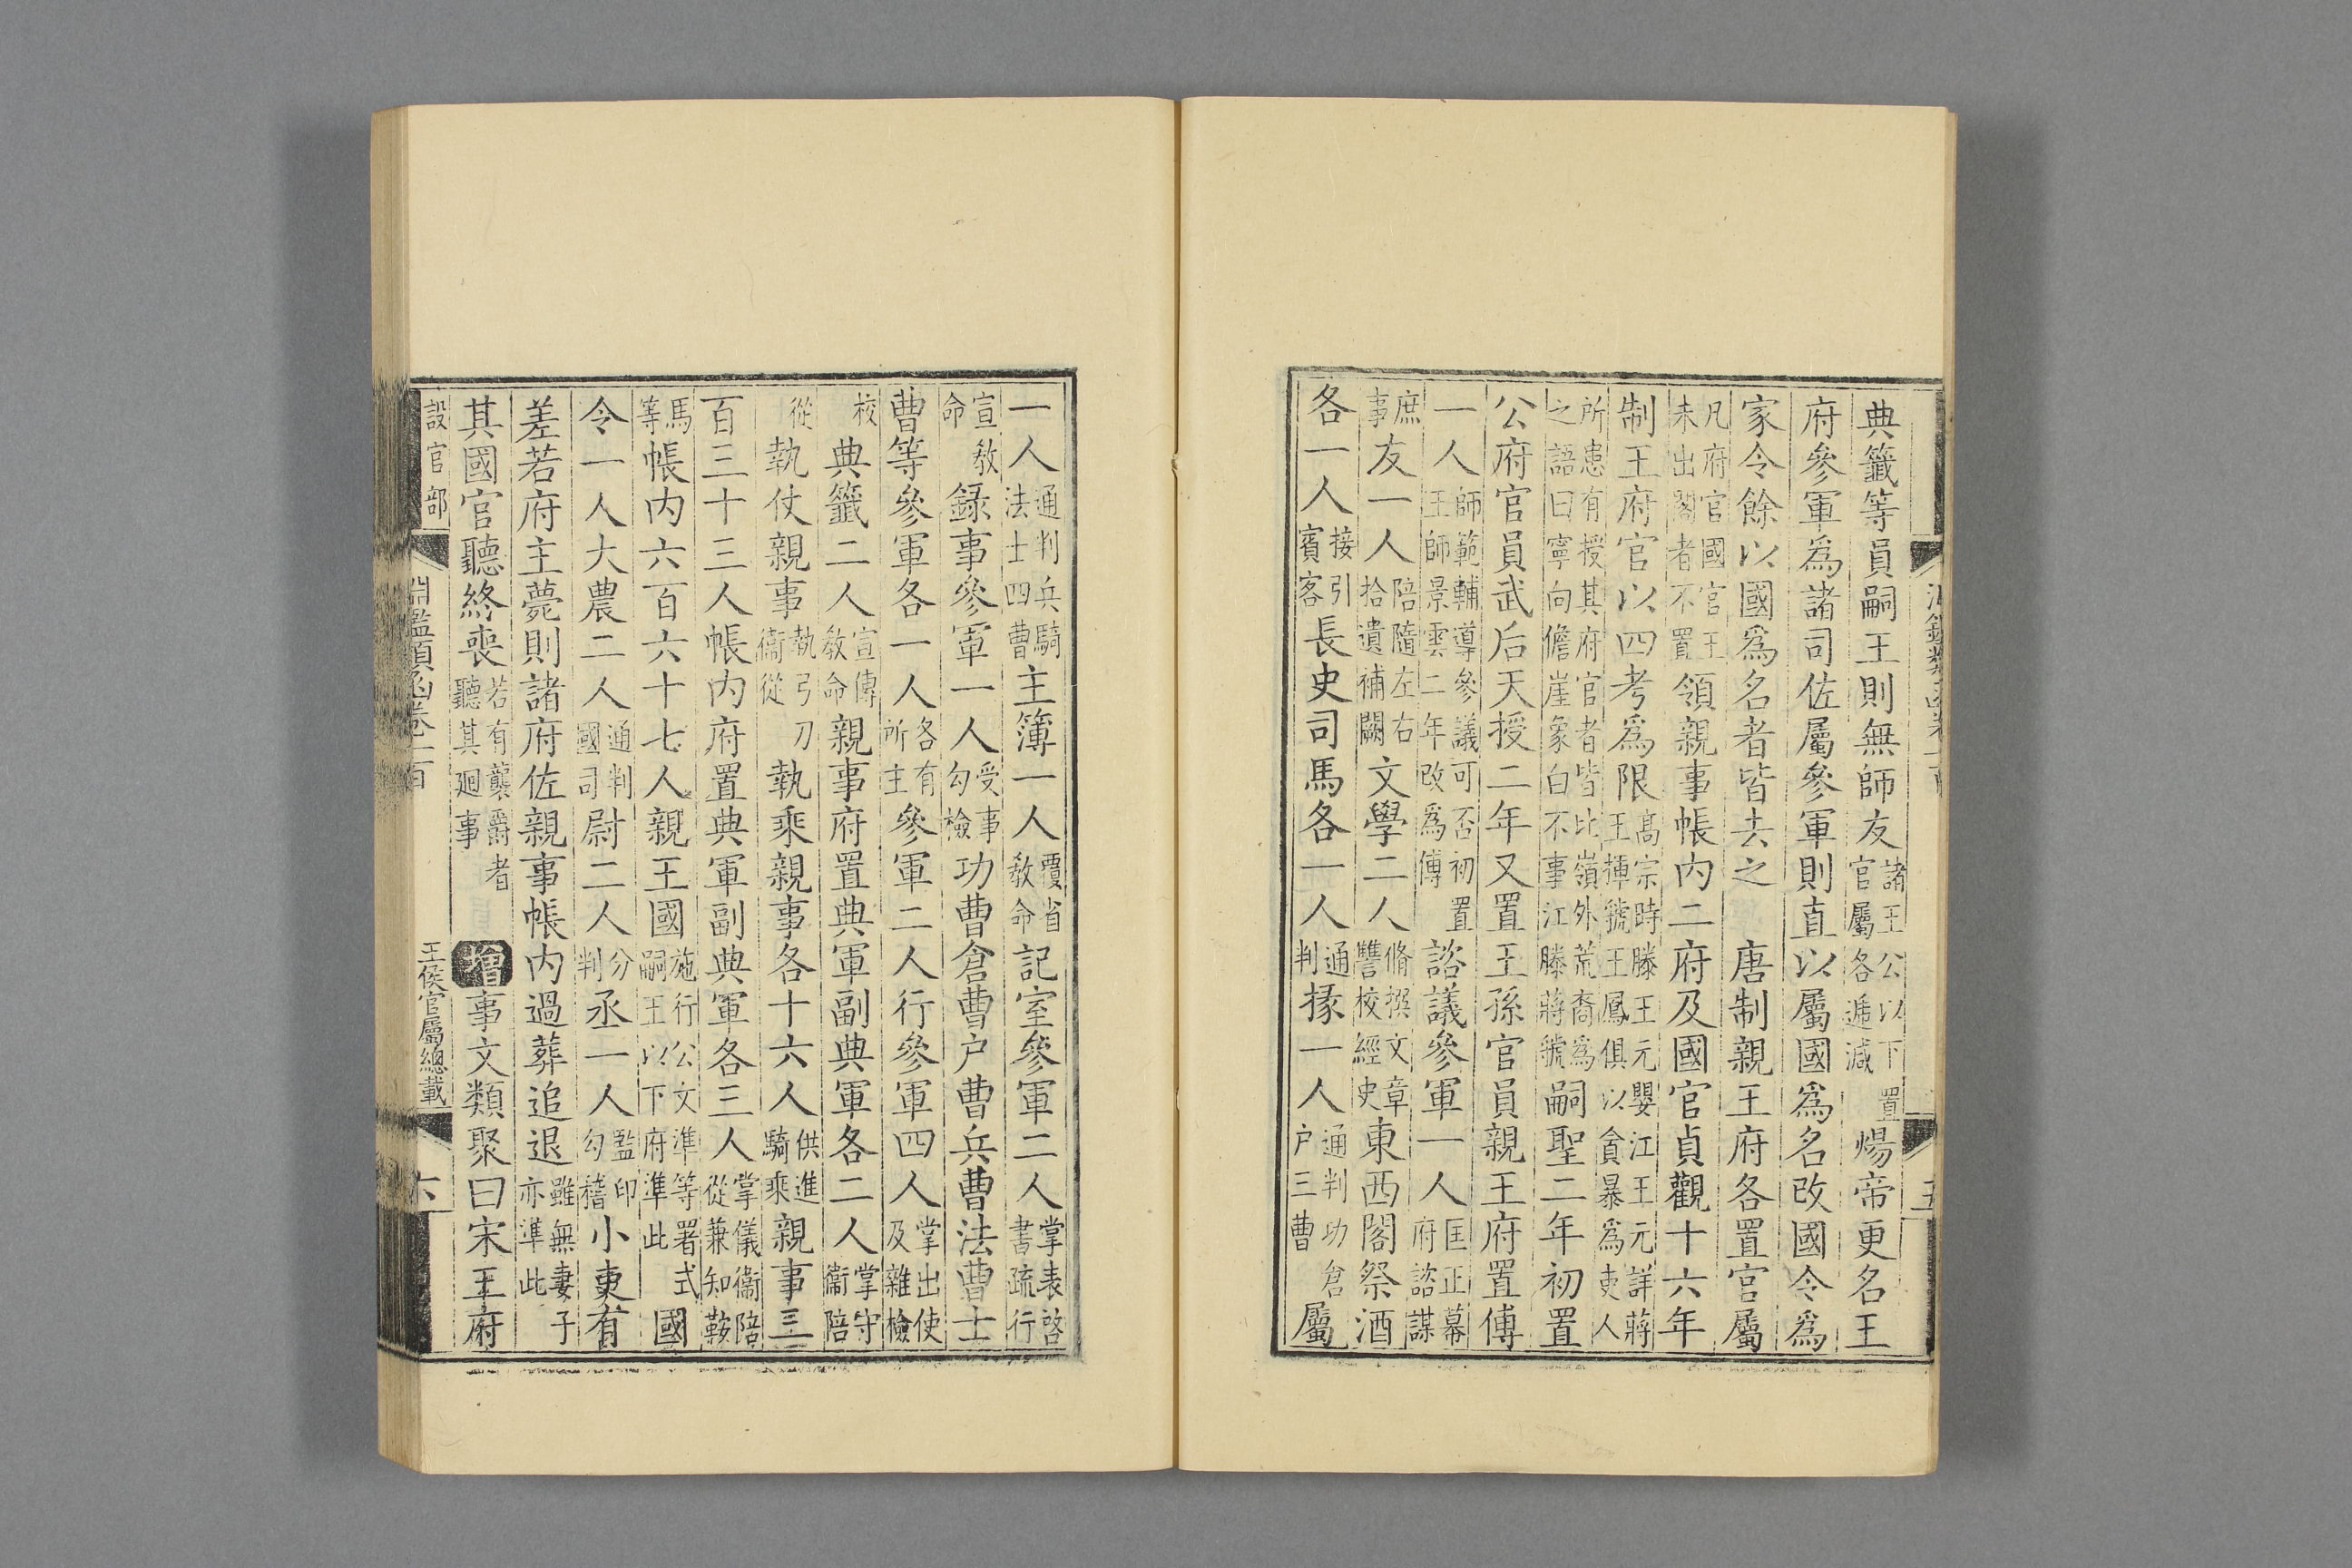 典籤等員嗣王則無師友諸王公以下置官屬各遞減煬帝更名王
府參軍爲諸司佐屬參軍則直以屬國爲名改國令爲
家令餘以國爲名者皆去之　唐制親王府各置官屬
凡府官國官王未出閣者不置領親事帳內二府及國官貞觀十六年
制王府官以四考爲限高宗時滕王元嬰江王元詳蔣王惲虢王鳳俱以貪暴爲吏人
所患有授其府官者皆比嶺外荒裔爲之語曰寧向儋崖象白不事江滕蔣虢嗣聖二年初置
公府官員武后天授二年又置王孫官員親王府置傅
一人師範輔導參議可否初置王師景雲二年改爲傅諮議參軍一人匡正幕府諮謀
庶事友一人陪隨左右拾遺補闕文學二人脩撰文章讐校經史東西閣祭酒
各一人接引賓客長史司馬各一人通判掾一人通判功倉戶三曹屬
一人通判兵騎法士四曹主簿一人覆省教命記室參軍二人掌表啓書疏行
宣教命錄事參軍一人受事勾檢功曹倉曹戶曹兵曹法曹士
曹等參軍各一人各有所主參軍二人行參軍四人掌出使及雜檢
校典籤二人宣傳教命親事府置典軍副典軍各二人掌守衞陪
從執仗親事執弓刀衞從執乘親事各十六人供進騎乘親事三
百三十三人帳內府置典軍副典軍各三人掌儀衞陪從兼知鞍
馬等帳內六百六十七人親王國施行公文準等署式嗣王以下府準此國
令一人大農二人通判國司尉二人分判丞一人監印勾稽小吏有
差若府主薨則諸府佐親事帳內過葬追退雖無妻子亦準此
其國官聽終喪若有襲爵者聽其廻事增事文類聚曰宋王府
設官部　淵鑑類函卷一百　王侯官屬總載　六